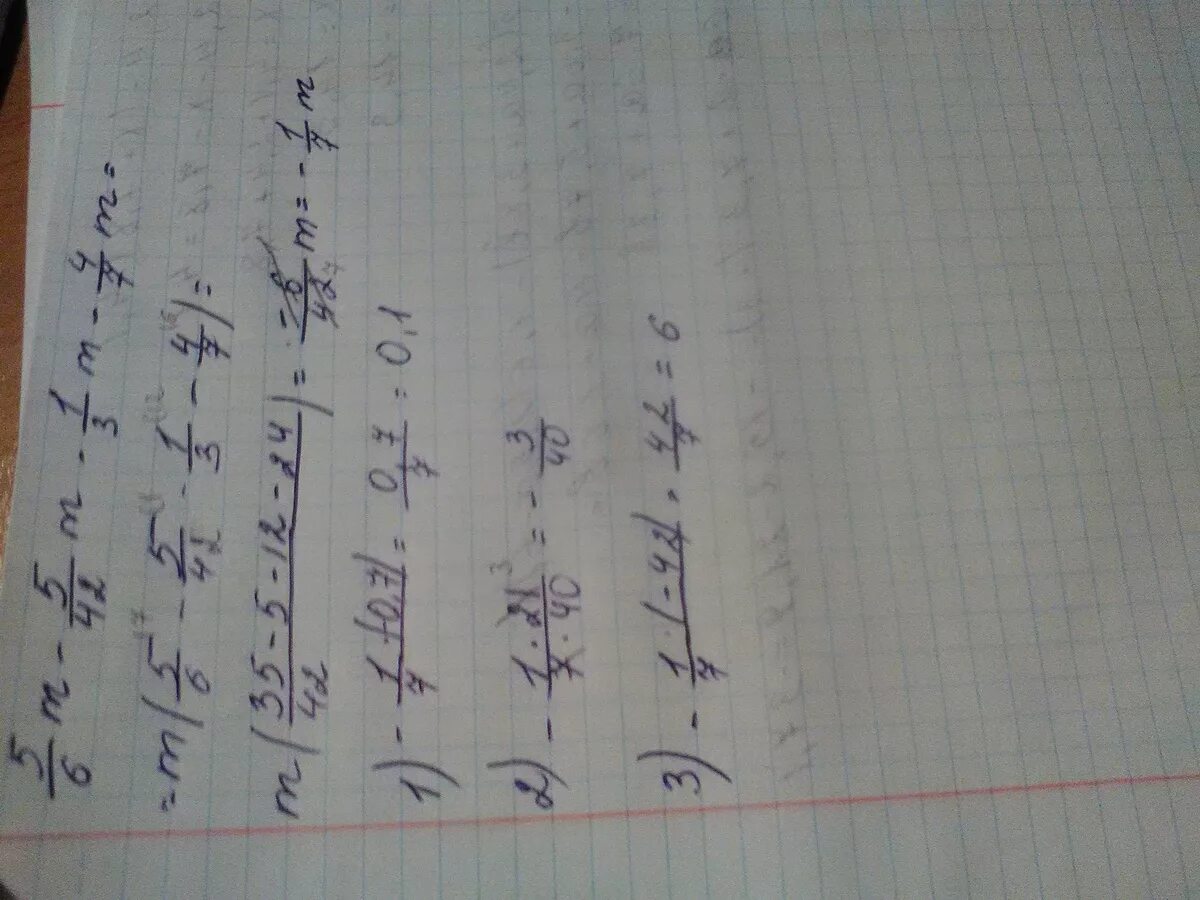 5/6 m - 5/42 m - 1/3 m - 4/7 m =
= m(5/6 - 5/42 - 1/3 - 4/7) =
m(35-5-12-24/42) = -6/42 m = - 1/7 m
1) - 1/7 (-0,7) = 0,7/7 = 0,1
2) - 1·21/7·40 = - 3/40
3) - 1·(-42)/7 = 42/7 = 6